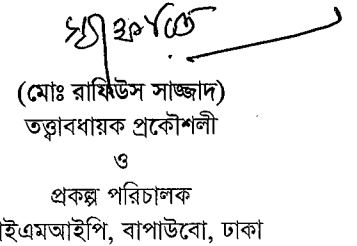 (মোঃ রাফিউস সাজ্জাদ)
তত্ত্বাবধায়ক প্রকৌশলী
ও
প্রকল্প পরিচালক
ইএমআইপি, বাপাউবো, ঢাকা